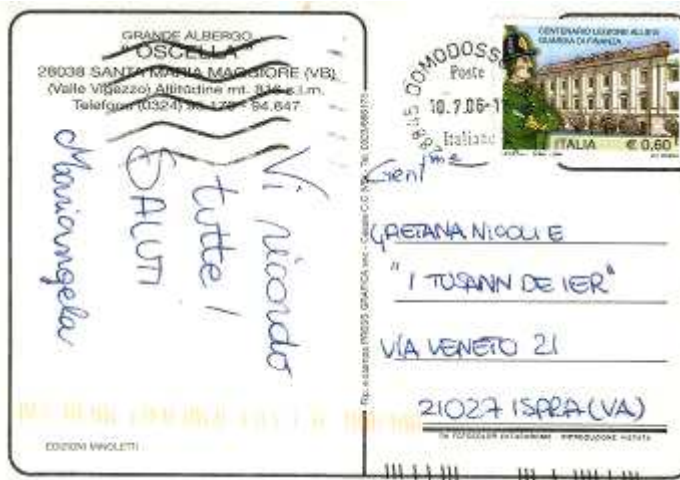 GRANDE ALBERGO
"OSCELLA"
28038 SANTA MARIA MAGGIORE (VB)
(Valle Vigezzo) Altitudine mt. 816 s.l.m.
Telefono (0324) 94.647
Vi ricordo
tutte!
SALUTI
Mariangela
EDIZIONI MINOLETTI
DOMODOSS
Poste
10.7.06
Italiane
CENTENARIO LEGIONE ALLIEVI
GUARDIA DI FINANZA
ITALIA € 0,60
Gent.me
GAETANA NICOLI E
"I TUSANN DE IER"
VIA VENETO 21
21027 ISPRA (VA)